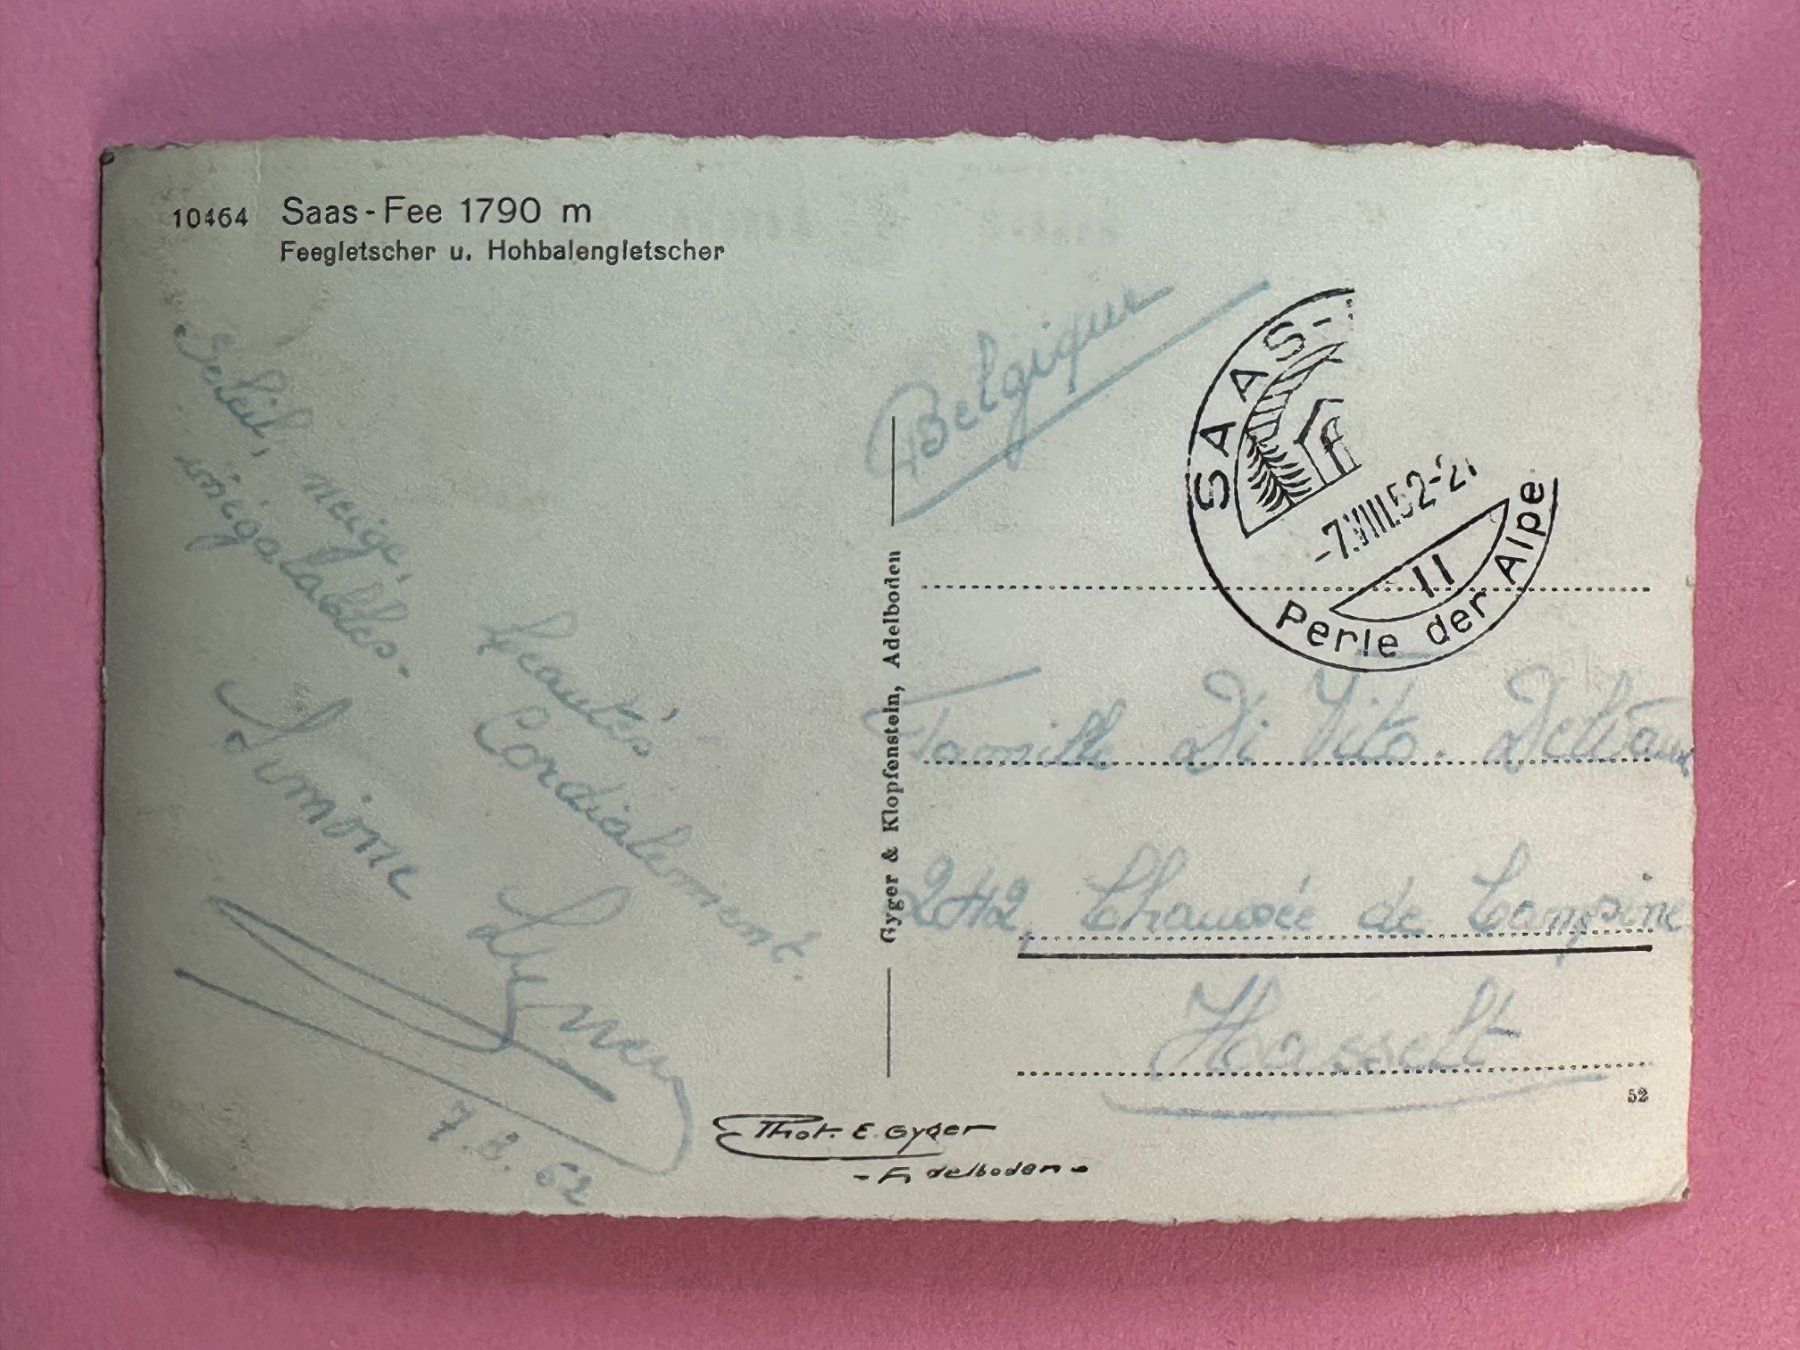 10464 Saas-Fee 1790 m
Feegletscher u. Hohbalengletscher
Soleil, neige, beautés
inégalables.
Cordialement.
Simone
7.8.52
Gyger & Klopfenstein, Adelboden
Phot. E. Gyger
- Adelboden -
Belgique
SAAS-
-7.VIII.52-21
11
Perle der Alpe
Famille Di Vito. Delvaux
242, Chaussée de Campine
Hasselt
52